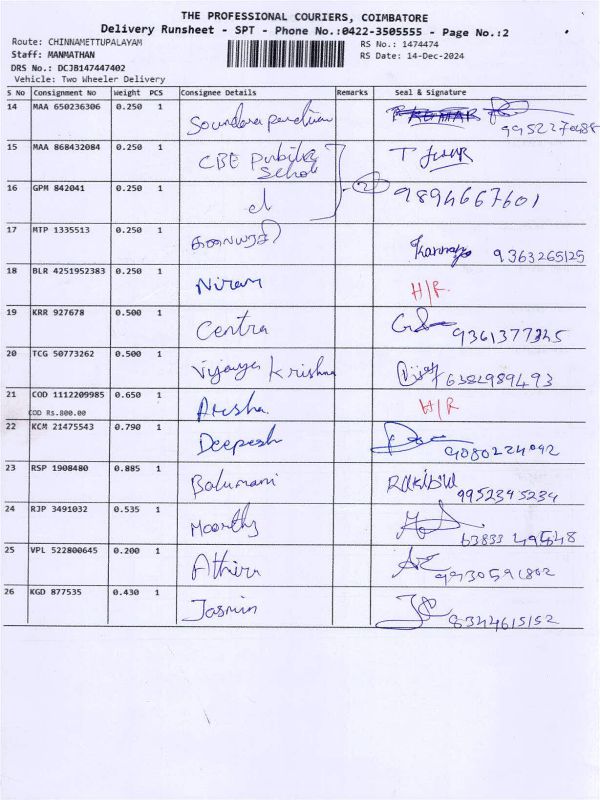 THE PROFESSIONAL COURIERS, COIMBATORE
Delivery Runsheet - SPT - Phone No.:0422-3505555 - Page No.:2
Route: CHINNAMETTUPALAYAM
RS No.: 1474474
Staff: MANMATHAN
RS Date: 14-Dec-2024
DRS No.: DCJB147447402
Vehicle: Two Wheeler Delivery
S No Consignment No Weight PCS Consignee Details Remarks Seal & Signature
14 MAA 650236306 0.250 1 Soundara pandian
15 MAA 868432084 0.250 1 CBE Public School T
16 GPM 842041 0.250 1 cl 2 9894667601
17 MTP 1335513 0.250 1 கலையரசி 9363265125
18 BLR 4251952383 0.250 1 Niram H/R
19 KRR 927678 0.500 1 Centra 9361377345
20 TCG 50773262 0.500 1 Vijaya Krishna 6382989493
21 COD 1112209985 0.650 1 Arusha H/R
COD Rs.800.00
22 KCM 21475543 0.790 1 Deepesh 9080224092
23 RSP 1908480 0.885 1 Balumani 9952345234
24 RJP 3491032 0.535 1 Moorthy
25 VPL 522800645 0.200 1 Athira 9930591802
26 KGD 877535 0.430 1 Jasmin 8344615152